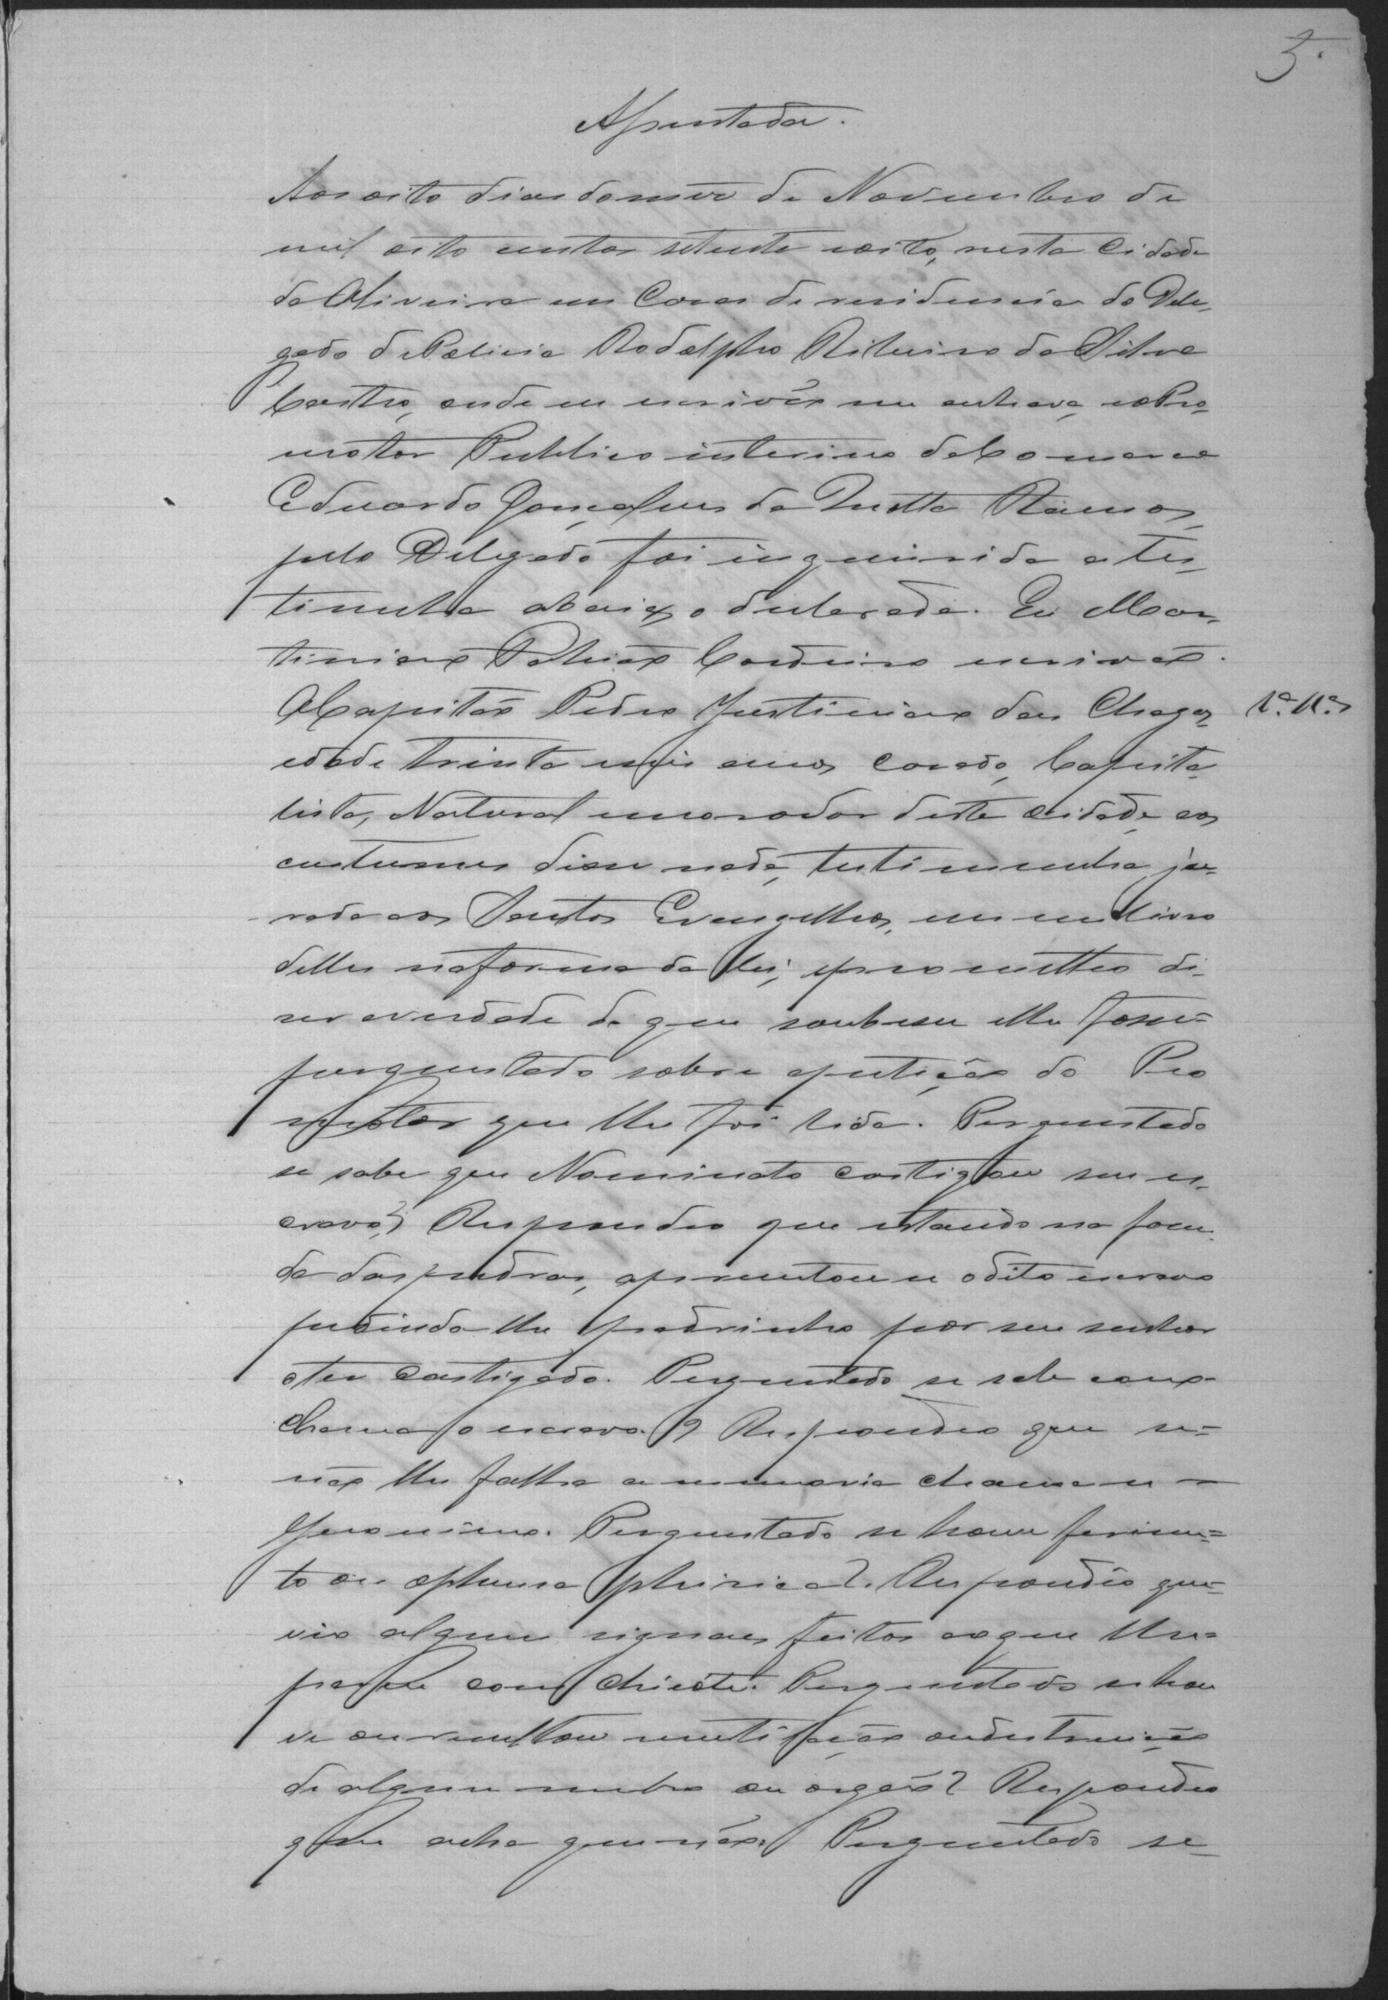 5.
Assentada.
Aos oito dias do mez de Novembro de
mil oito centos setenta e oito, nesta Cidade
da Oliveira em Casas de residencia do Dele-
gado de Policia Rodolpho Ribeiro da Silva
Castro, onde eu escrivão me achava, e o Pro-
motor Publico interino da Comarca
Eduardo Gonçalves da Motta Ramos,
pelo Delegado foi inquirida a tes-
timunha abaixo declarada. Eu Mar-
tiniano Cordeiro escrivão.
O Capitão Pedro Justiniano das Chagas,
idade trinta e seis annos, casado, Capita-
lista, Natural e morador desta cidade, aos
custumes disse nada, testimunha ju-
rada aos Santos Evangelhos, em um livro
delles na forma da lei, e prometteo di-
ser a verdade do que soubesse e lhe fosse
perguntado sobre a petição do Pro
motor que lhe foi lida. Perguntado
se sabe que Nominato castigou seu es-
cravo? Respondeo que estando na fasen-
da das pedras, apresentou-se o dito escravo
pedindo lhe padrinho por seu senhor
o ter castigado. Perguntado se sabe como
chama o escravo? Respondeo que se-
não lhe falha a memoria chama-se
Jeronimo. Perguntado se houve ferimen-
to ou offensa phisica? Respondeo que
vio alguns signaes feitos ao que lhe
parece com chicote. Perguntado se hou
ve ou resultou mutilação ou destruição
de algum membro ou orgão? Respondeo
que acha que não. Perguntado se